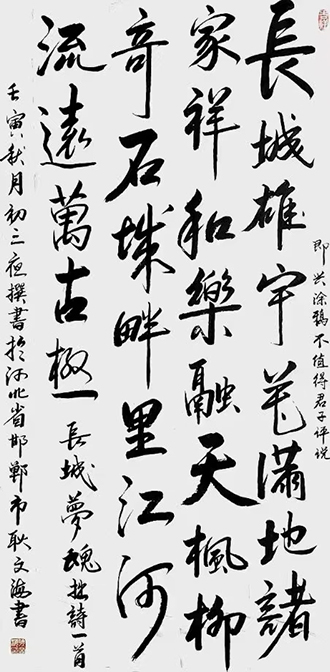 長城雄宇花滿地諸
即兴涂鴉不值得君子评说
家祥和樂融天楓柳
奇石城畔里江河
流遠萬古極
長城夢魂拙詩一首
壬寅秋月初三夜撰書於河北省邯鄲市耿文海書